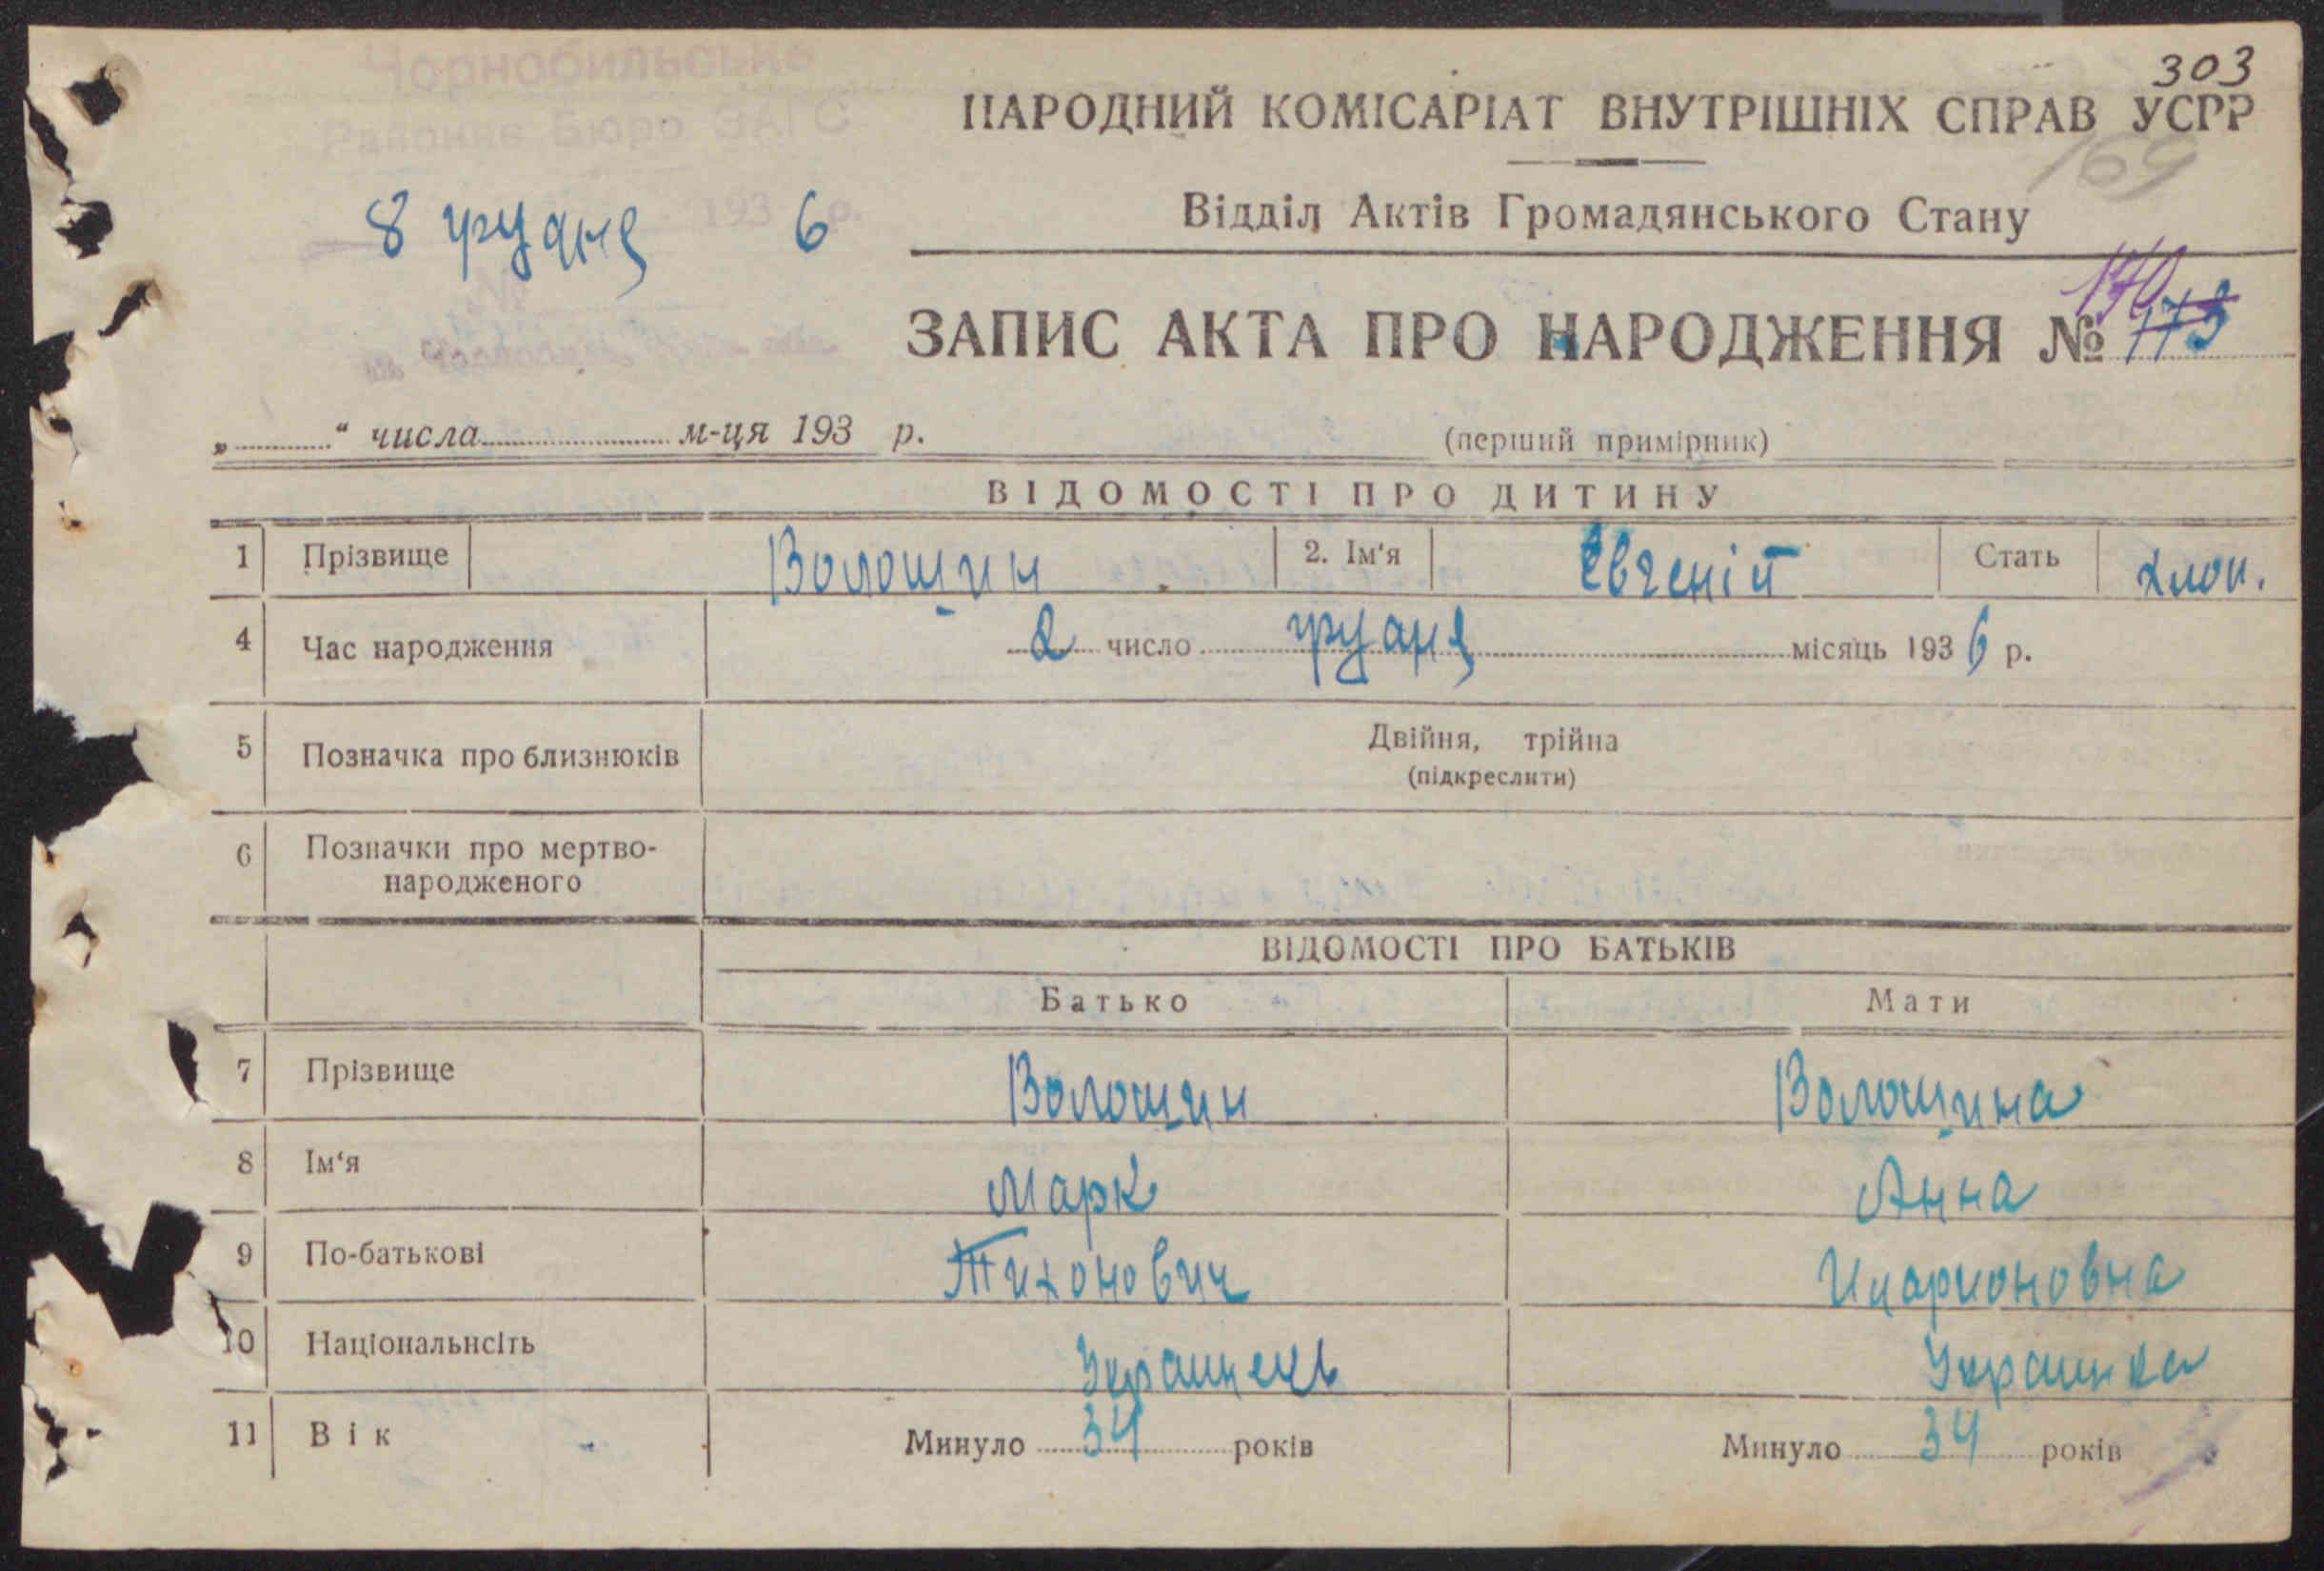 303
Чорнобильське
Районне Бюро ЗАГС
НАРОДНИЙ КОМІСАРІАТ ВНУТРІШНІХ СПРАВ УСРР
169
8 грудня 1936 р.
Відділ Актів Громадянського Стану
170
ЗАПИС АКТА ПРО НАРОДЖЕННЯ № 173
„ “ числа м-ця 193 р.
(перший примірник)
ВІДОМОСТІ ПРО ДИТИНУ
1 Прізвище Волощин 2. Ім‘я Євгеній Стать хлоп.
4 Час народження 2 число грудня місяць 1936 р.
5 Позначка про близнюків Двійня, трійна
(підкреслити)
6 Позначки про мертво-
народженого
ВІДОМОСТІ ПРО БАТЬКІВ
Батько Мати
7 Прізвище Волощин Волощина
8 Ім‘я Марк Анна
9 По-батькові Тихонович Иларионовна
10 Національнсіть Українець Українка
11 Вік Минуло 34 років Минуло 34 років